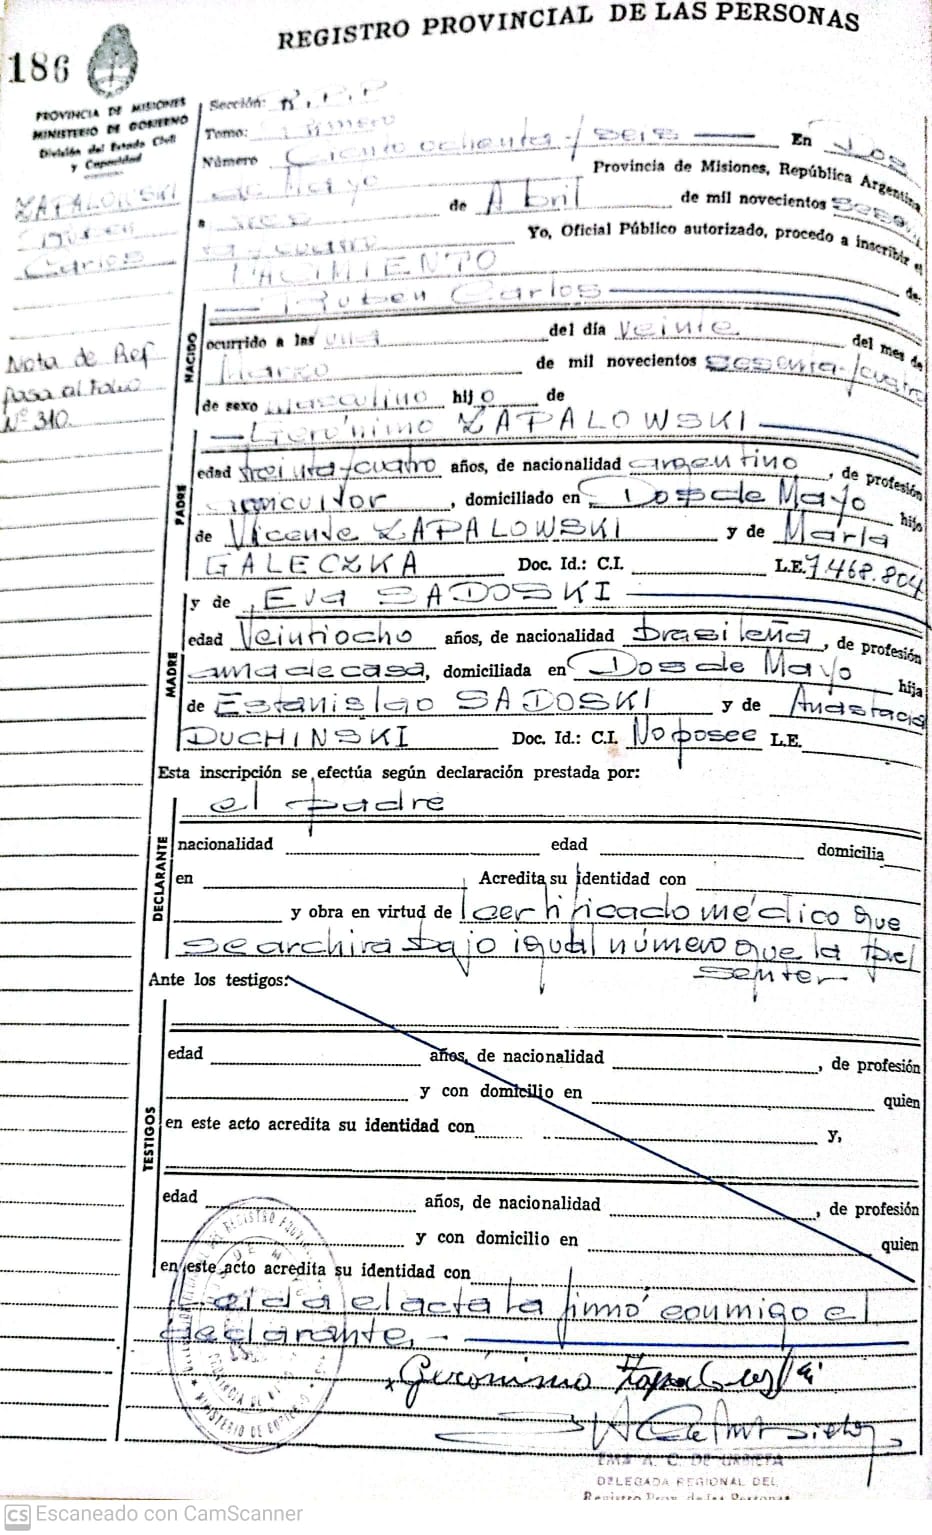 REGISTRO PROVINCIAL DE LAS PERSONAS
186
PROVINCIA DE MISIONES
MINISTERIO DE GOBIERNO
División del Estado Civil
y Capacidad
ZAPALOWSKI
Ruben
Carlos
Nota de Ref
pasa al Folio
Nº 310.
Sección: R.P.P
Tomo: Primero
Número Ciento ochenta y seis En Dos
de Mayo Provincia de Misiones, República Argentina
a seis de Abril de mil novecientos sesenta
y cuatro Yo, Oficial Público autorizado, procedo a inscribir el
NACIMIENTO de:
Ruben Carlos
NACIDO
ocurrido a las una del día Veinte del mes de
Marzo de mil novecientos sesenta y cuatro
de sexo Masculino hijo de
Gerónimo ZAPALOWSKI
PADRE
edad treinta y cuatro años, de nacionalidad argentino, de profesión
, domiciliado en Dos de Mayo hijo
de Vicente ZAPALOWSKI y de María
GALECZKA Doc. Id.: C.I. L.E. 7.468.804
y de Eva SADOSKI
MADRE
edad Veintiocho años, de nacionalidad brasileña, de profesión
ama de casa, domiciliada en Dos de Mayo hija
de Estanislao SADOSKI y de Anastacia
DUCHINSKI Doc. Id.: C.I. No posee L.E.
Esta inscripción se efectúa según declaración prestada por:
el padre
DECLARANTE
nacionalidad edad domicilia
en Acredita su identidad con
y obra en virtud de certificado médico que
se archiva bajo igual número que la pre
sente
Ante los testigos:
TESTIGOS
edad años, de nacionalidad , de profesión
y con domicilio en quien
en este acto acredita su identidad con y,
edad años, de nacionalidad , de profesión
y con domicilio en quien
en este acto acredita su identidad con
Leida el acta la firmó conmigo el
declarante.-
Gerónimo Zapalowski
EMA A. C. DE URRIETA
DELEGADA REGIONAL DEL
Registro Prov. de las Personas
CS Escaneado con CamScanner